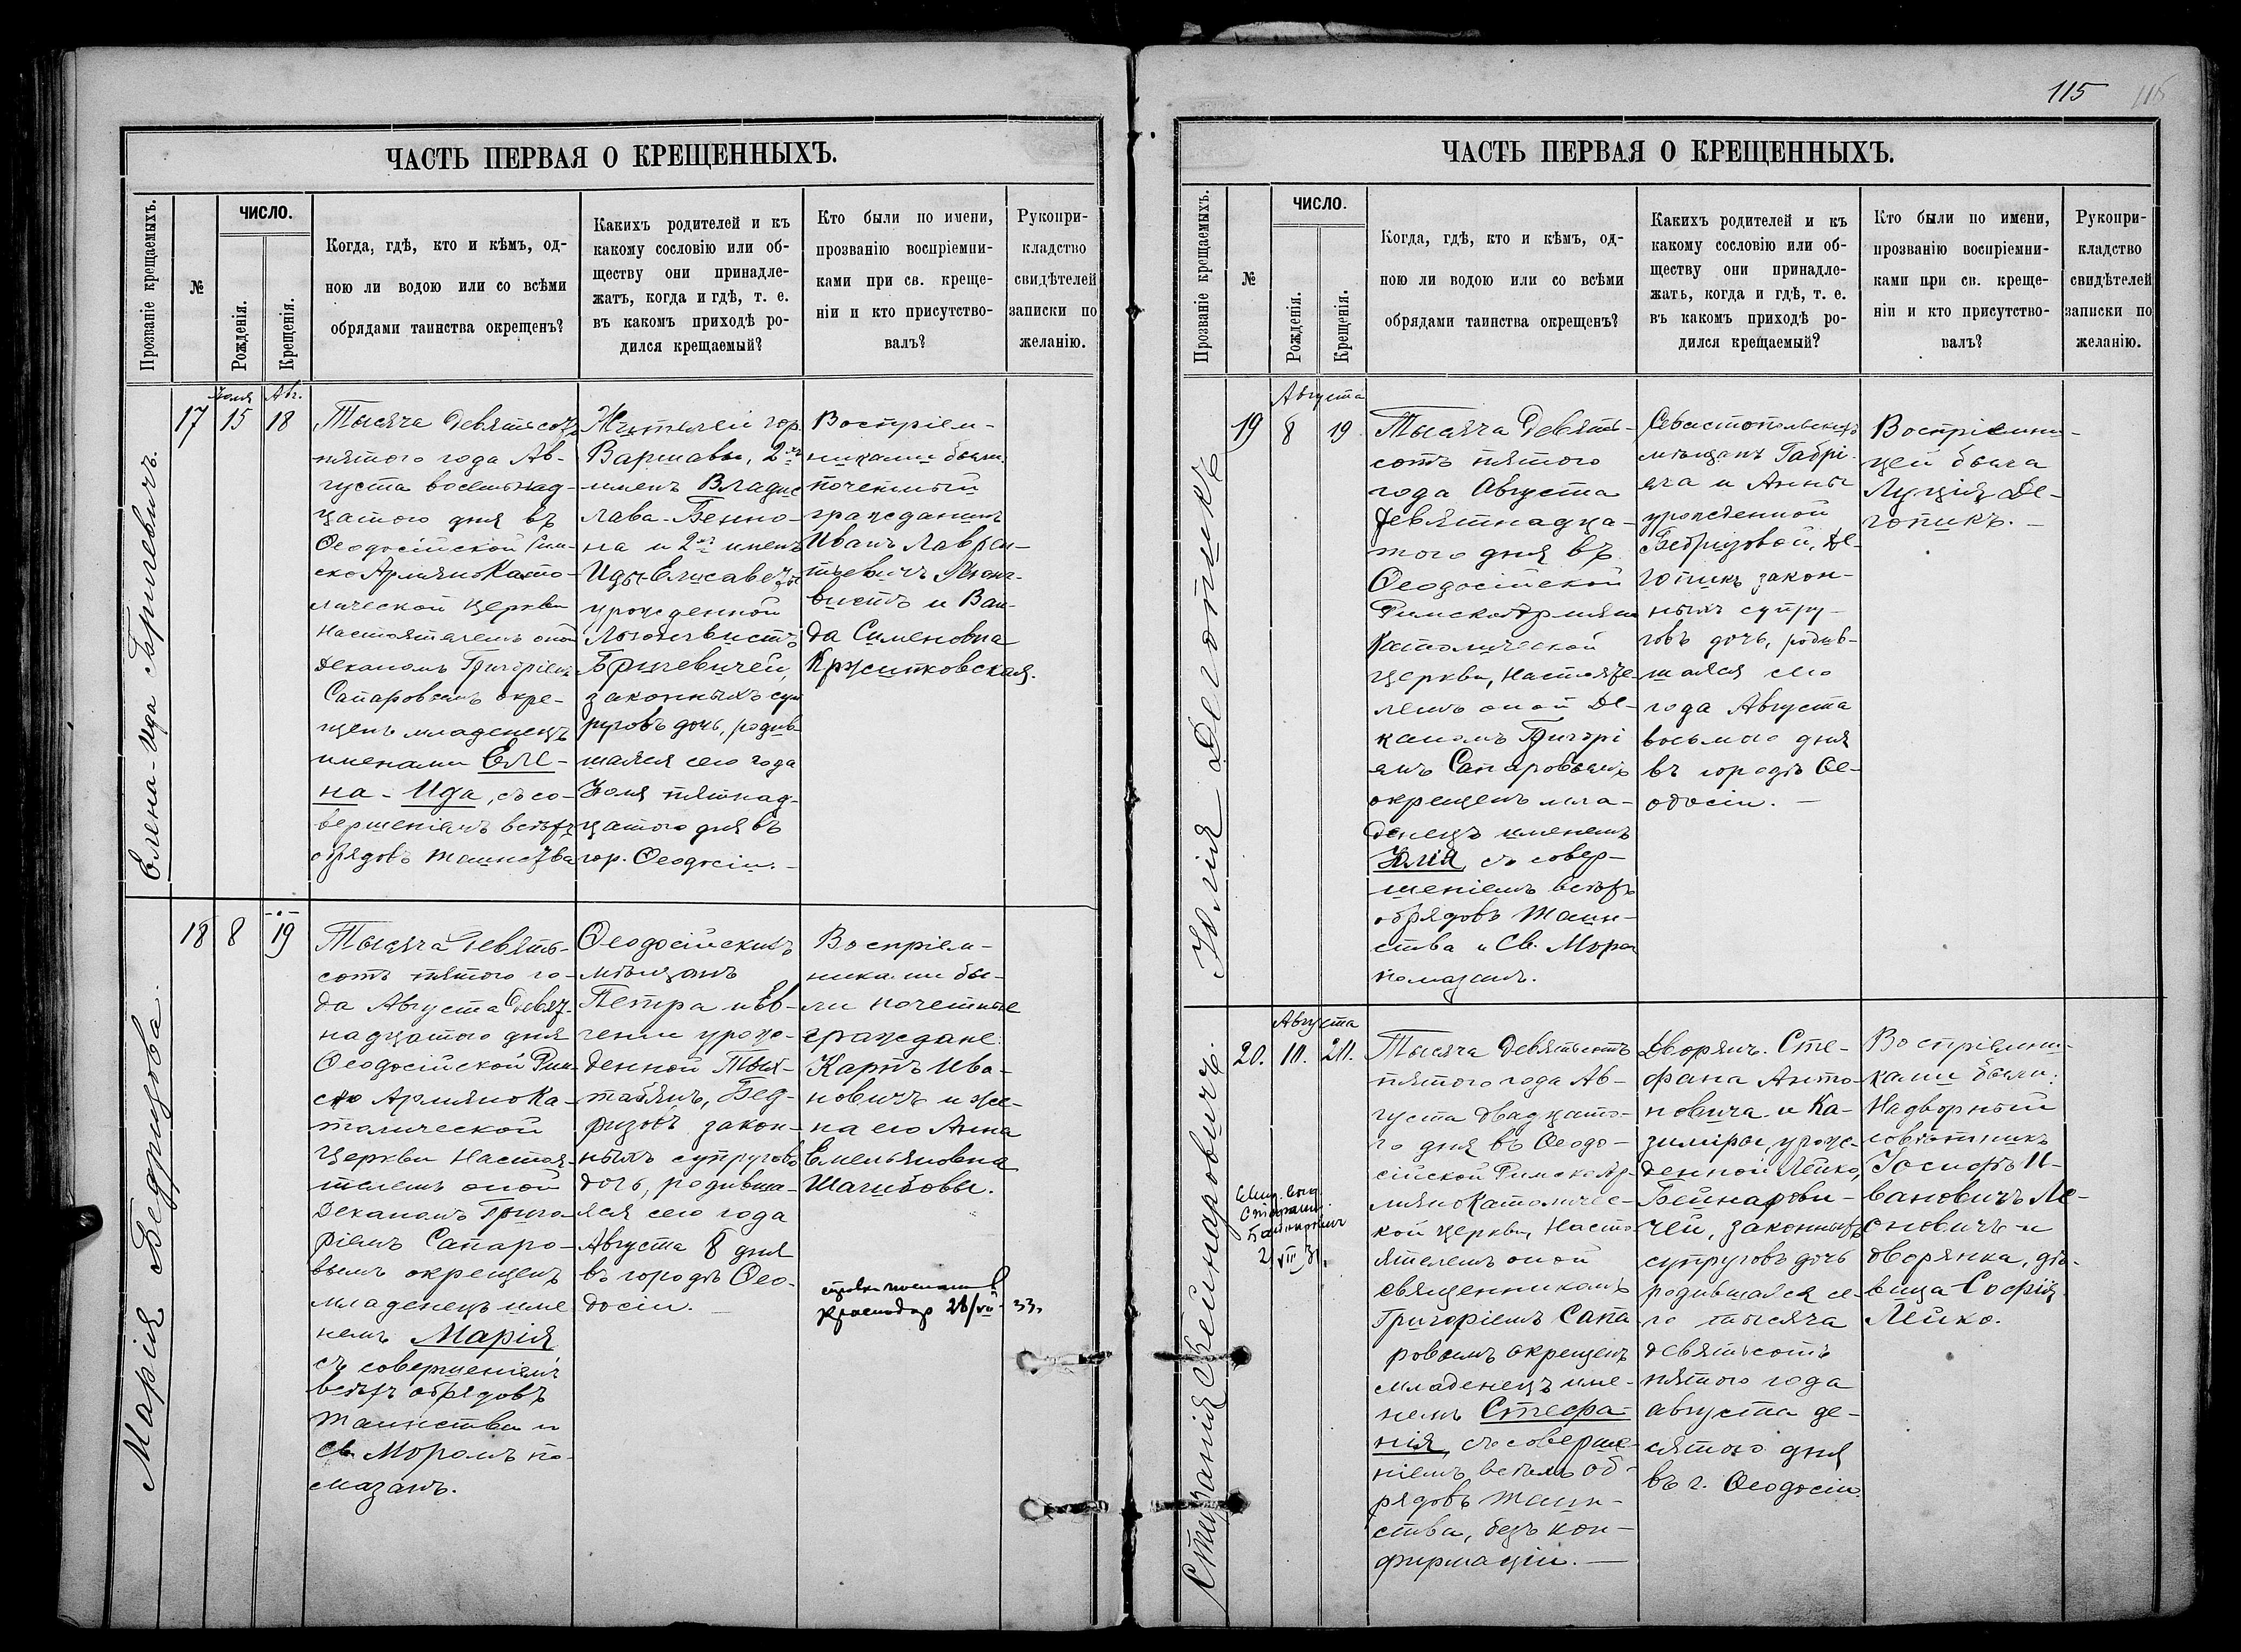 115
115
ЧАСТЬ ПЕРВАЯ О КРЕЩЕННЫХЪ.
Прозваніе крещаемыхъ.
№
ЧИСЛО.
Рожденія.
Крещенія.
Когда, гдѣ, кто и кѣмъ, од-
ною ли водою или со всѣми
обрядами таинства окрещенъ?
Какихъ родителей и къ
какому сословію или об-
ществу они принадле-
жатъ, когда и гдѣ, т. е.
въ какомъ приходѣ ро-
дился крещаемый?
Кто были по имени,
прозванію воспріемни-
ками при св. креще-
ніи и кто присутство-
валъ?
Рукопри-
кладство
свидѣтелей
записки по
желанію.
Елена-Ида Бригевичъ.
17
Іюля
15
Авг.
18
Тысяча девятьсотъ
пятого года Ав-
густа восемнад-
цатого дня въ
Ѳеодосійской Рим-
ско Армяно Като-
лической церкви
Настоятелемъ оной
Деканомъ Григоріемъ
Сапаровымъ окре-
щенъ младенецъ
именами Еле-
на-Ида, съ со-
вершеніемъ всѣхъ
обрядовъ таинства
Жителей гор.
Варшавы, 2хъ
именъ Владис
лава-Бенно-
на и 2хъ именъ
Иды-Елисаветы
урожденной
Бригевичей,
законныхъ суп
руговъ дочь, родив-
шаяся сего года
Іюля пятнад-
цатого дня въ
гор. Ѳеодосіи.-
Воспріем-
никами были:
почетный
гражданинъ
Иванъ Лаврен-
тьевичъ
и Ван-
да Сименовна
Кржитковская.
Марія Бедризова.
18
8
-"-
19
Тысяча девять-
сотъ пятого го-
да Августа девят-
надцатого дня
Ѳеодосійской Рим-
ско Армяно Ка-
толической
Церкви Настоя-
телемъ оной
Деканомъ Григо-
ріемъ Сапаро-
вымъ окрещенъ
младенецъ име
немъ Марія
съ совершеніемъ
всѣхъ обрядовъ
таинства и
Св. Моромъ по-
мазанъ.
Ѳеодосійскихъ
мѣщанъ
Петра и Ев-
геніи урож-
денной
Бед-
ризовъ закон-
ныхъ супруговъ
дочь, родивша-
яся сего года
Августа 8 дня
въ городѣ Ѳео-
досіи. -
Воспріем-
никами бы-
ли почетные
граждане:
Карпъ Ива-
новичъ и же-
на его Анна
Емельяновна
Шагибовы.
Краснодар 28/VII - 33.
ЧАСТЬ ПЕРВАЯ О КРЕЩЕННЫХЪ.
Прозваніе крещаемыхъ.
№
ЧИСЛО.
Рожденія.
Крещенія.
Когда, гдѣ, кто и кѣмъ, од-
ною ли водою или со всѣми
обрядами таинства окрещенъ?
Какихъ родителей и къ
какому сословію или об-
ществу они принадле-
жатъ, когда и гдѣ, т. е.
въ какомъ приходѣ ро-
дился крещаемый?
Кто были по имени,
прозванію воспріемни-
ками при св. креще-
ніи и кто присутство-
валъ?
Рукопри-
кладство
свидѣтелей
записки по
желанію.
Юлія Дегопикъ
19
Августа
8
19
Тысяча девять-
сотъ пятого
года Августа
девятнадца-
того дня въ
Ѳеодосійской
Римско Армяно
Католической
церкви, Настояте-
лемъ оной Де-
каномъ Григорі
емъ Сапаровымъ
окрещенъ мла-
денецъ именемъ
Юлія съ совер-
шеніемъ всѣхъ
обрядовъ таин-
ства и Св. Мора
помазанъ.
Севастопольскихъ
мѣщанъ Габрі-
ела и Анны
урожденной
Бедризовой, Де-
гопикъ закон-
ныхъ супру-
говъ дочь, родив-
шаяся сего
года Августа
восьмого дня
въ городѣ Ѳе-
одосіи. -
Воспріемни-
цей была
Луція Де-
гопикъ. -
Стефанія Бейнаровичъ.
20.
Августа
10.
20.
Тысяча девятьсотъ
пятого года Ав-
густа двадцато-
го дня въ Ѳеодо-
сійской Римско Ар-
мяно Католичес-
кой церкви, Насто-
ятелемъ оной
священникомъ
Григоріемъ Сапа-
ровымъ окрещенъ
младенецъ име-
немъ Стефа-
нія, съ соверше-
ніемъ всѣхъ об-
рядовъ таин-
ства, безъ кон-
фирмаціи. -
Дворянъ. Сте-
фана Анто-
новича и Ка-
зиміры, урож-
денной Лейко,
Бейнарови-
чей, законныхъ
супруговъ дочь
родившаяся се-
го тысяча
девятьсотъ
пятого года
августа де-
сятого дня
въ г. Ѳеодосіи.
Воспріемни-
ками были:
Надворный
совѣтникъ
Іосифъ И-
вановичъ Ле-
сновичъ и
дворянка, дѣ-
вица София
Лейко.